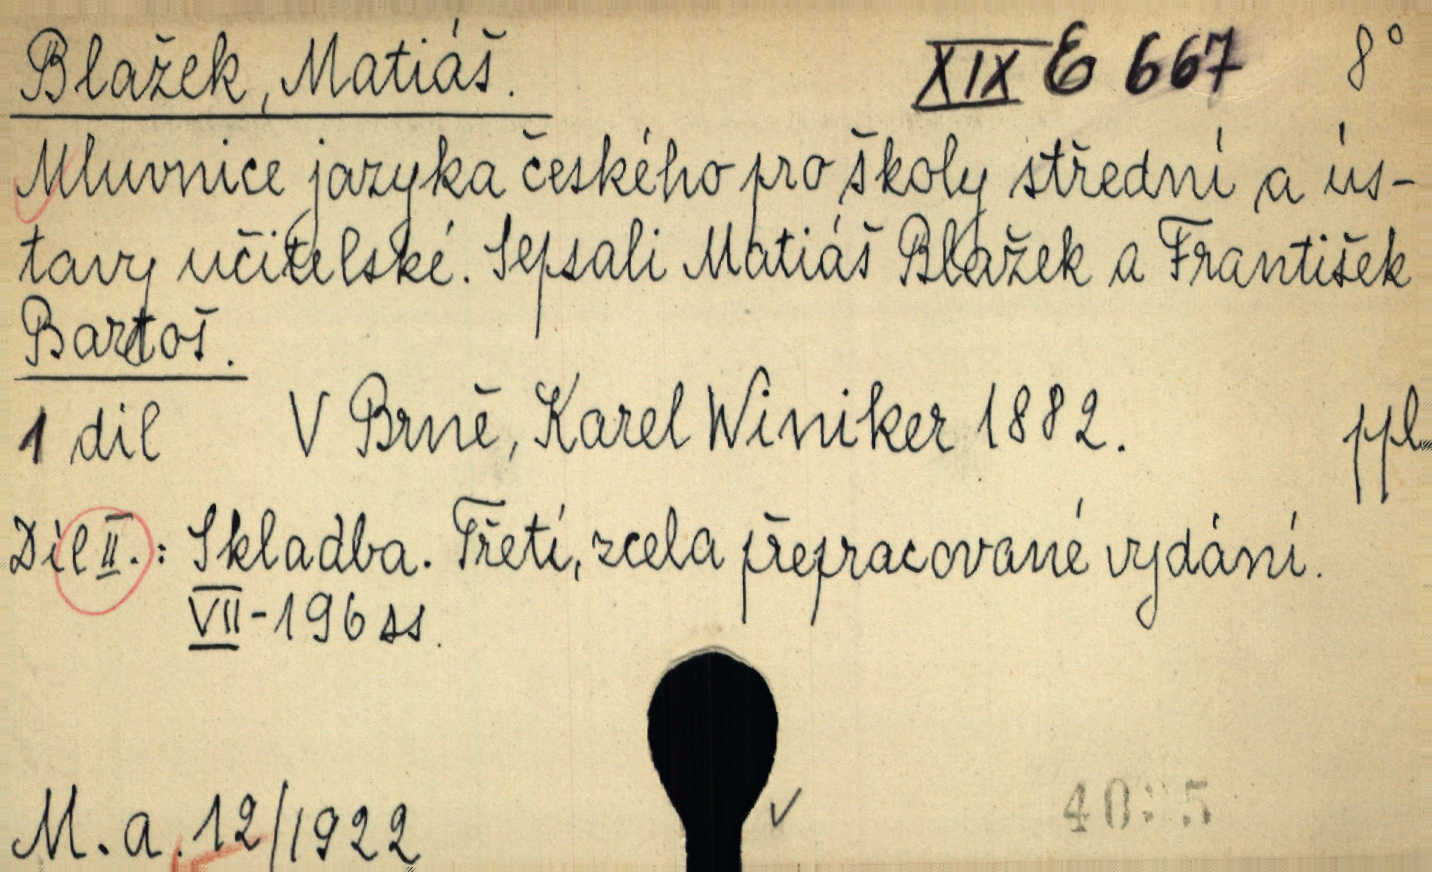 Blažek, Matiáš. XIX E 667 8°
Mluvnice jazyka českého pro školy střední a ús-
tavy učitelské. Sepsali Matiáš Blažek a František
Bartoš.
1 díl V Brně, Karel Winiker 1882. ppl.
Díl II.: Skladba. Třetí, zcela přepracované vydání.
VII-196 ss.
M. a. 12/1922